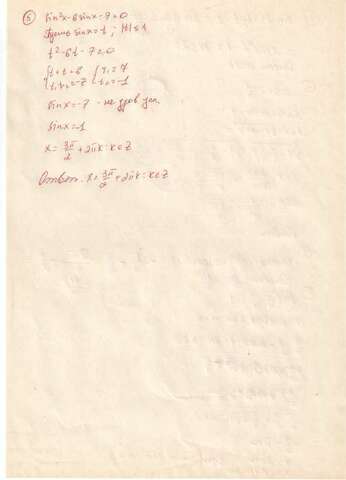 ⑤ sin²x - 6sinx - 7 = 0
Пусть sinx = t ; |t| ≤ 1
t² - 6t - 7 = 0
{ t₁ + t₂ = 6 { t₁ = 7
{ t₁t₂ = -7 { t₂ = -1
sinx = -7 - не удов усл.
sinx = 1
x = 3π/2 + 2πk : k ∈ Z
Ответ. x = 3π/2 + 2πk : k ∈ Z